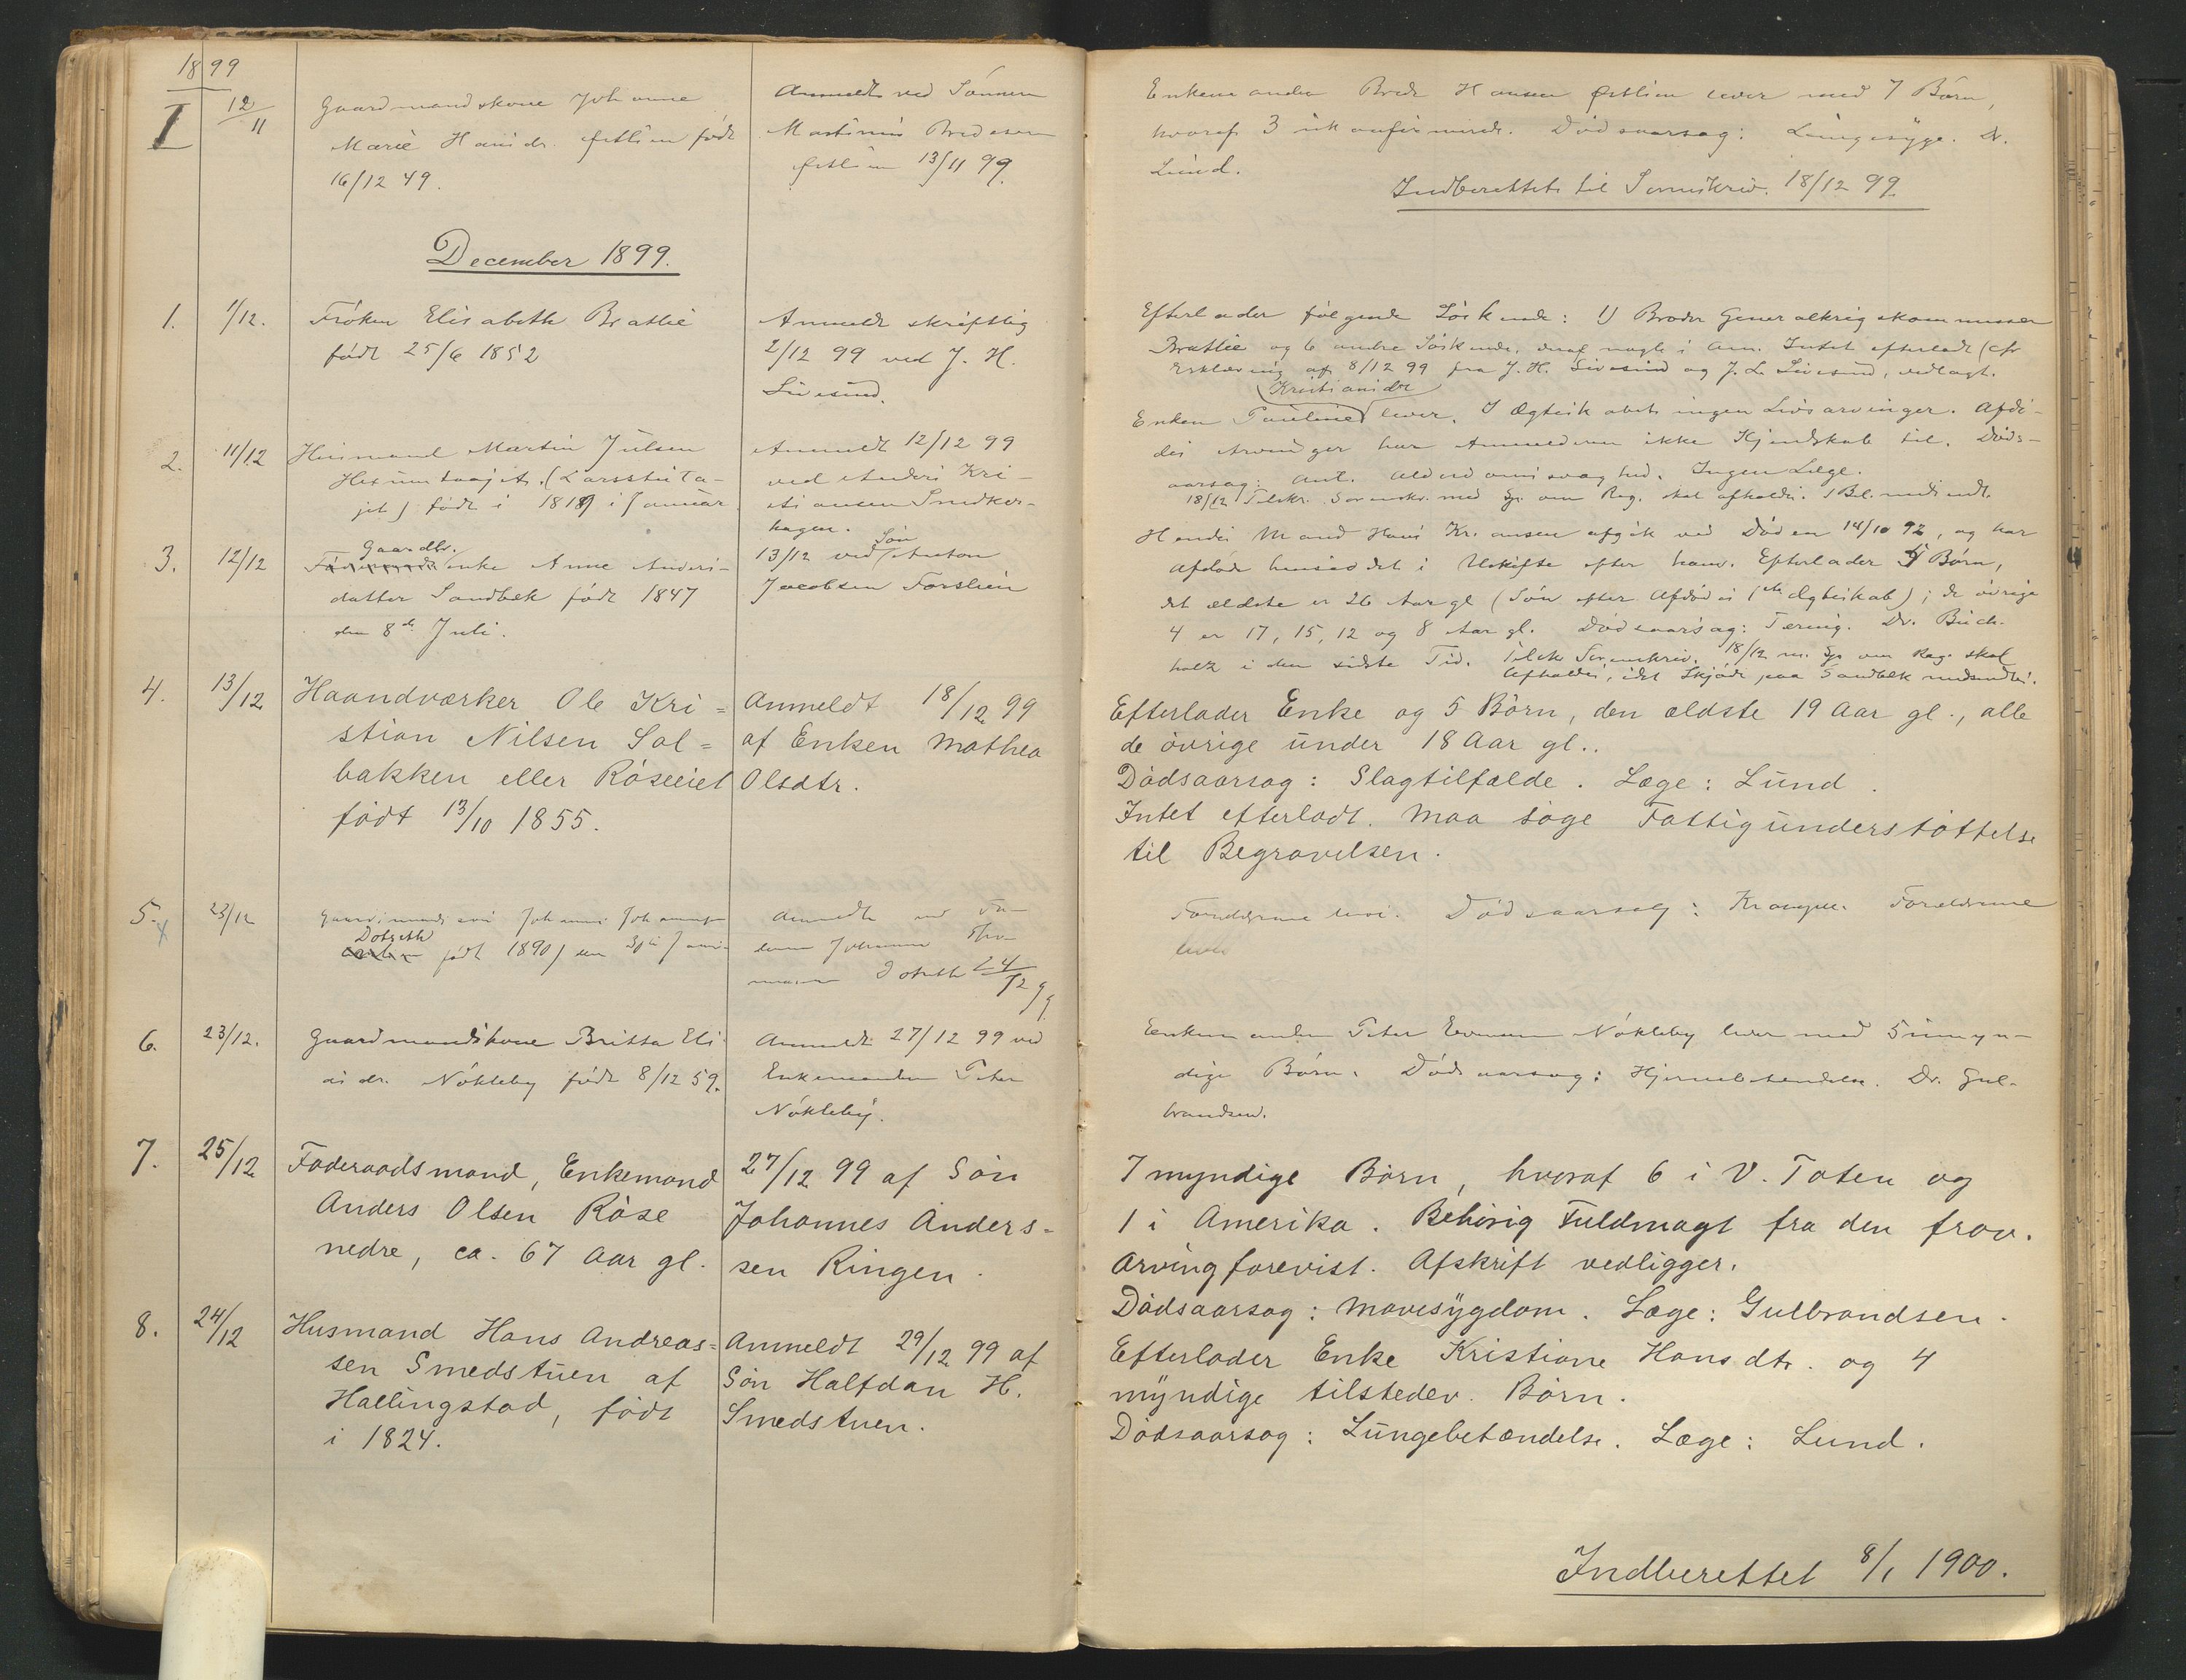 1899
I 12/11 Gaardmandskone Johanne
Marie Hansdr. Østlien født
16/12 49.
Anmeldt ved Sønnen
Martinus Bredesen
Østlien 13/11 99.
Enkemanden Brede Hansen Østlien lever med 7 Børn,
hvoraf 3 ukonfirmerede. Dødsaarsag: Lungesyge. Dr.
Lund.
Indberettet til Sorenskriv. 18/12 99.
December 1899.
1. 1/12. Frøken Elisabeth Bratlie
født 25/6 1852
Anmeldt skriftlig
2/12 99 ved J. H.
Sivesind.
Efterlader følgende Søskende: 1) Broder Generalkrigskommissær
Bratlie og 6 andre Søskende, deraf nogle i Am. Intet efterladt (cfr
Erklæring af 8/12 99 fra J. H. Sivesind og J. L. Sivesind, vedlagt.
2. 11/12 Husmand Martin Julsen
(Larsstuta-
jet) født i 1819 i Januar
Anmeldt 12/12 99
ved Anders Kri-
stiansen Smedker-
hagen.
Kristiansdr
Enken Pauline lever. I Ægteskabet ingen Livsarvinger. Afdø-
des Arvinger har Anmelderen ikke Kjendskab til. Døds-
aarsag: Ant. Alderdomssvaghed. Ingen Læge.
18/12 Tilskr. Sorenskr. med Sp. om Reg. skal afholdes. 1 Bil. medsendt.
3. 12/12 Gaardbr.
enke Anne Anders-
datter Sandbæk født 1847
den 8de Juli.
Søn
13/12 ved Anton
Jacobsen Forslien
Hendes Mand Hans Kr.ansen afgik ved Døden 14/10 92, og har
Afdøde hensiddet i Uskifte efter ham. Efterlader 5 Børn,
det ældste er 26 Aar gl (Søn efter Afdødes 1ste Ægteskab); de øvrige
4 er 17, 15, 12 og 8 Aar gl. Dødsaarsag: Tæring. Dr. Buch-
holz i den sidste Tid. Tilskr. Sorenskriv. 18/12 m. Sp. om Reg. skal
afholdes, idet Skjøde paa Sandbæk medsendtes.
4. 13/12 Haandværker Ole Kri=
stian Nilsen Sol=
bakken eller Røseeiet
født 13/10 1855.
Anmeldt 18/12 99
af Enken Mathea
Olsdtr.
Efterlader Enke og 5 Børn, den ældste 19 Aar gl., alle
de øvrige under 18 Aar gl..
Dødsaarsag: Slagtilfælde. Læge: Lund.
Intet efterladt. Maa søge Fattigunderstøttelse
til Begravelsen.
5. 23/12 Johannes
Dotseth
født 1890
Anmeldt ved Fa-
deren Johannes
Dotseth 24/12 99
Forældrene leve. Dødsaarsag: Krampe. Forældrene
leve
6. 23/12. Gaardmandskone Britta Eli-
asdr. Nökleby født 8/12 59.
Anmeldt 27/12 99 ved
Enkemanden Peter
Nökleby.
Enkemanden Peter Evensen Nökleby lever med 5 umyn-
dige Børn. Dødsaarsag: Hjernebetændelse. Dr. Gul-
brandsen.
7. 25/12 Føderaadsmand, Enkemand
Anders Olsen Røse
nedre, ca. 67 Aar gl.
27/12 99 af Søn
Johannes Anders=
sen Ringen.
7 myndige Børn, hvoraf 6 i V. Toten og
1 i Amerika. Behørig Fuldmagt fra den frav.
Arving forevist. Afskrift vedligger.
Dødsaarsag: Mavesygdom. Læge: Gulbrandsen.
8. 24/12 Husmand Hans Andreas=
sen Smedstuen af
Hallingstad, født
i 1824.
Anmeldt 29/12 99 af
Søn Halfdan H.
Smedstuen.
Efterlader Enke Kristiane Hansdtr. og 4
myndige tilstedev. Børn.
Dødsaarsag: Lungebetændelse. Læge: Lund.
Indberettet 8/1 1900.